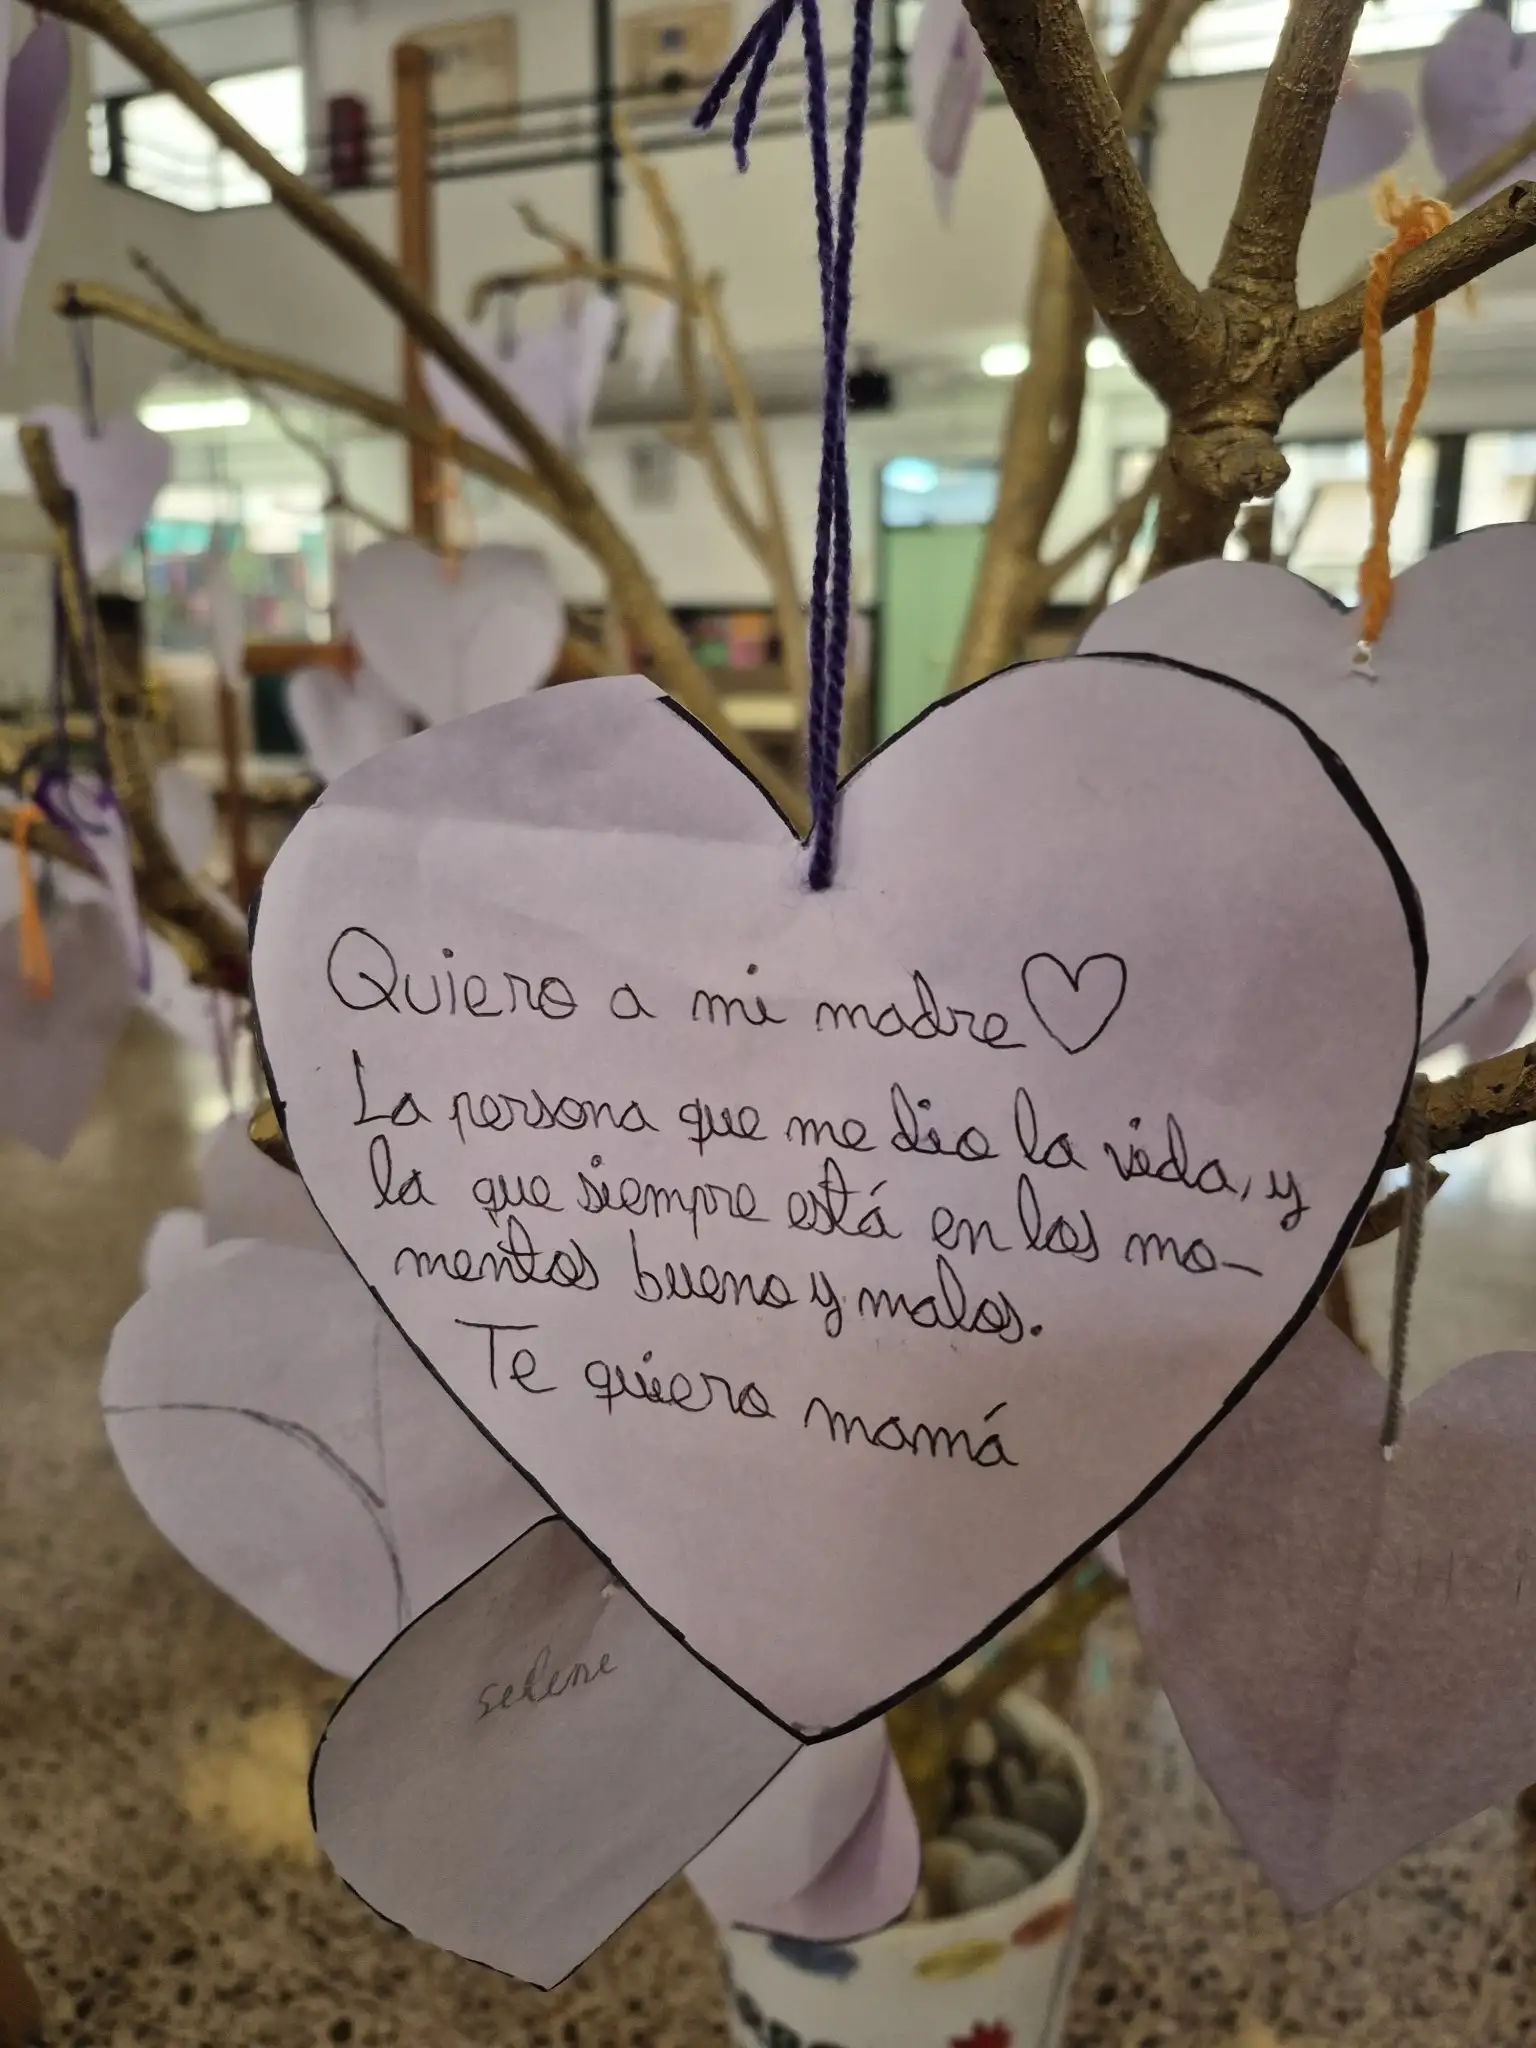 Quiero a mi madre
La persona que me dio la vida, y
la que siempre está en los mo-
mentos bueno y malos.
Te quiero mamá
selene